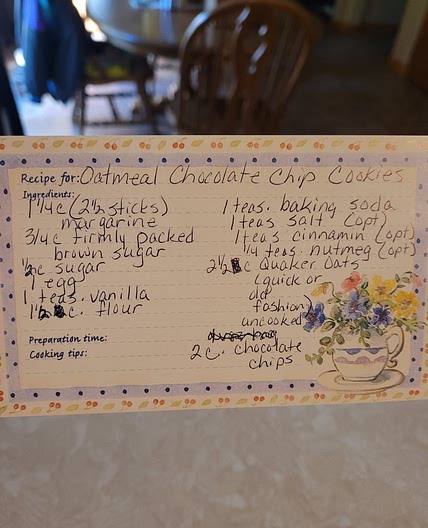 Recipe for: Oatmeal Chocolate Chip Cookies
Ingredients:
1 1/4 c (2 1/2 sticks)
margarine
3/4 c firmly packed
brown sugar
1/2 c sugar
1 egg
1 teas. vanilla
1 1/2 c. flour
1 teas. baking soda
1 teas salt (opt)
1 teas cinnamin (opt)
1/4 teas. nutmeg (opt)
2 1/2 c Quaker Oats
(quick or
old
fashion)
uncooked
2 c. chocolate
chips
Preparation time:
Cooking tips: